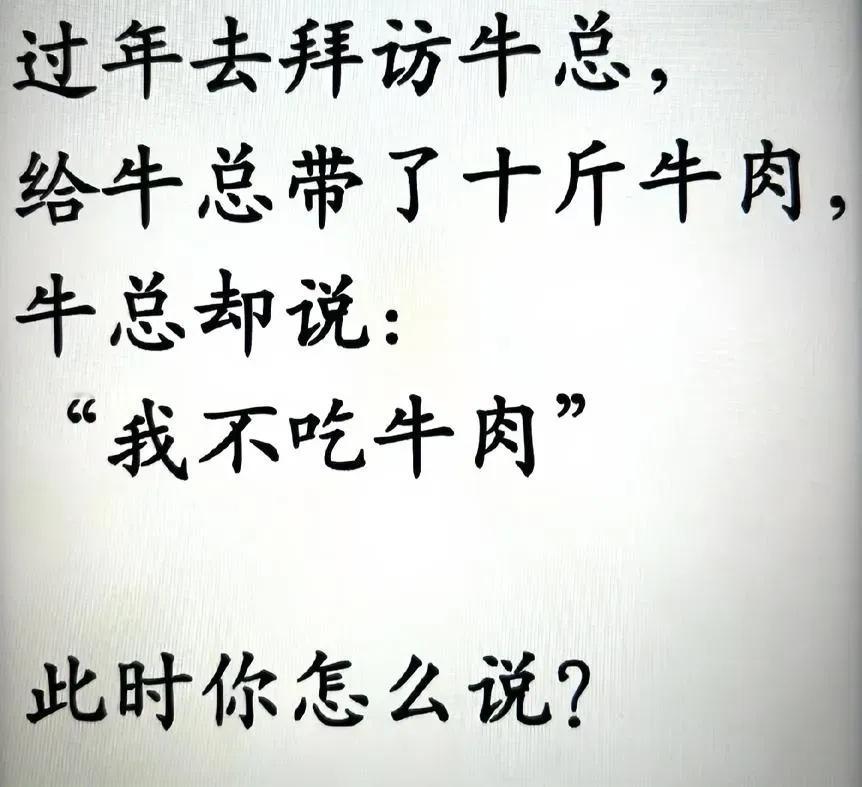 过年去拜访牛总，
给牛总带了十斤牛肉，
牛总却说：
“我不吃牛肉”
此时你怎么说？